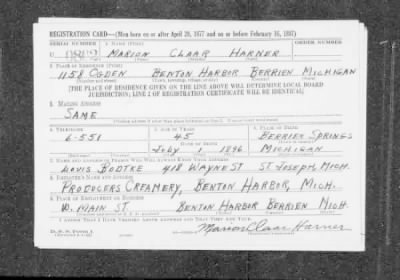 REGISTRATION CARD—(Men born on or after April 28, 1877 and on or before February 16, 1897)
SERIAL NUMBER 1. NAME (Print) ORDER NUMBER
U MARION CLAAR HARNER
2. PLACE OF RESIDENCE (Print)
1158 OGDEN BENTON HARBOR BERRIEN MICHIGAN
[THE PLACE OF RESIDENCE GIVEN ON THE LINE ABOVE WILL DETERMINE LOCAL BOARD
JURISDICTION; LINE 2 OF REGISTRATION CERTIFICATE WILL BE IDENTICAL]
3. MAILING ADDRESS
SAME
4. TELEPHONE 5. AGE IN YEARS 6. PLACE OF BIRTH
6-5581 45 BERRIEN SPRINGS
DATE OF BIRTH
JULY 1 1896 MICHIGAN
7. NAME AND ADDRESS OF PERSON WHO WILL ALWAYS KNOW YOUR ADDRESS
LOUIS BODTKE 418 WAYNE ST ST. JOSEPH, MICH.
8. EMPLOYER'S NAME AND ADDRESS
PRODUCERS CREAMERY, BENTON HARBOR, MICH.
9. PLACE OF EMPLOYMENT OR BUSINESS
W. MAIN ST. BENTON HARBOR BERRIEN MICH
I AFFIRM THAT I HAVE VERIFIED ABOVE ANSWERS AND THAT THEY ARE TRUE.
D. S. S. Form 1
Marion Claar Harner